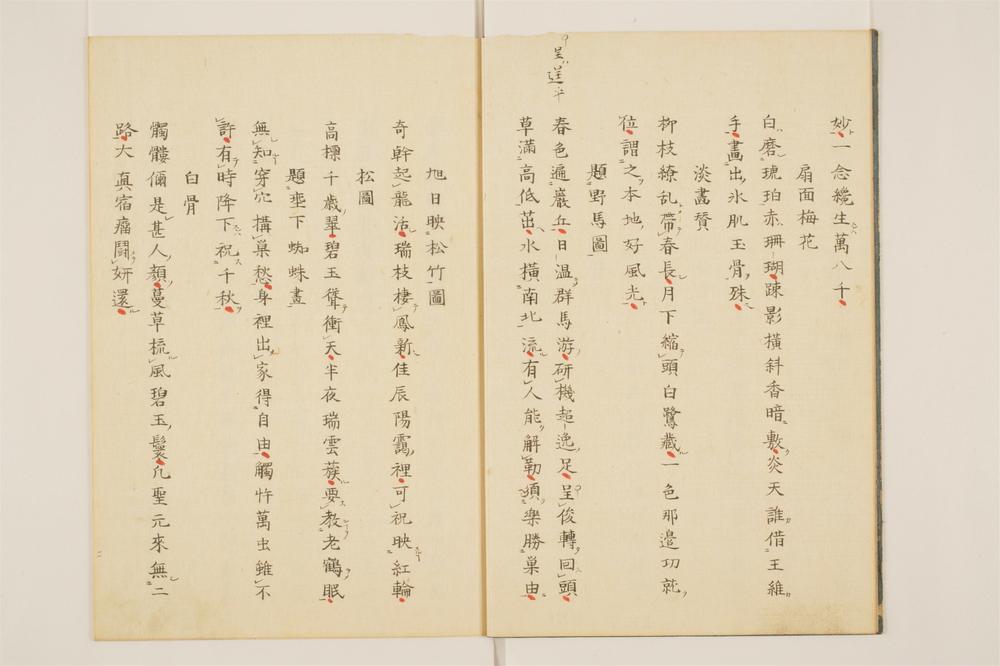 妙一念纔生萬八千
扇面梅花
白磨琥珀赤珊瑚踈影橫斜香暗敷炎天誰借王維
手畫出氷肌玉骨殊
淡畫賛
柳枝繚亂帶春長月下縮頭白鷺藏一色那邊功就
位謂之本地好風光
題野馬圖
呈逞平
春色遍巖丘日温群馬游研機超逸足呈俊轉回頭
草滿高低茁水橫南北流有人能解勒須樂勝巢由
旭日映松竹圖
奇幹起龍活瑞枝棲鳳新佳辰陽靄裡可祝映紅輪
松圖
高標千歲翠碧玉聳衝天半夜瑞雲蔟要教老鶴眠
題垂下蜘蛛畫
無知穿穴搆巢愁身裡出家得自由觸忤萬虫雖不
許有時降下祝千秋
白骨
髑髏儞是甚人顏蔓草梳風碧玉鬟凡聖元來無二
路大真宿瘤鬪妍還